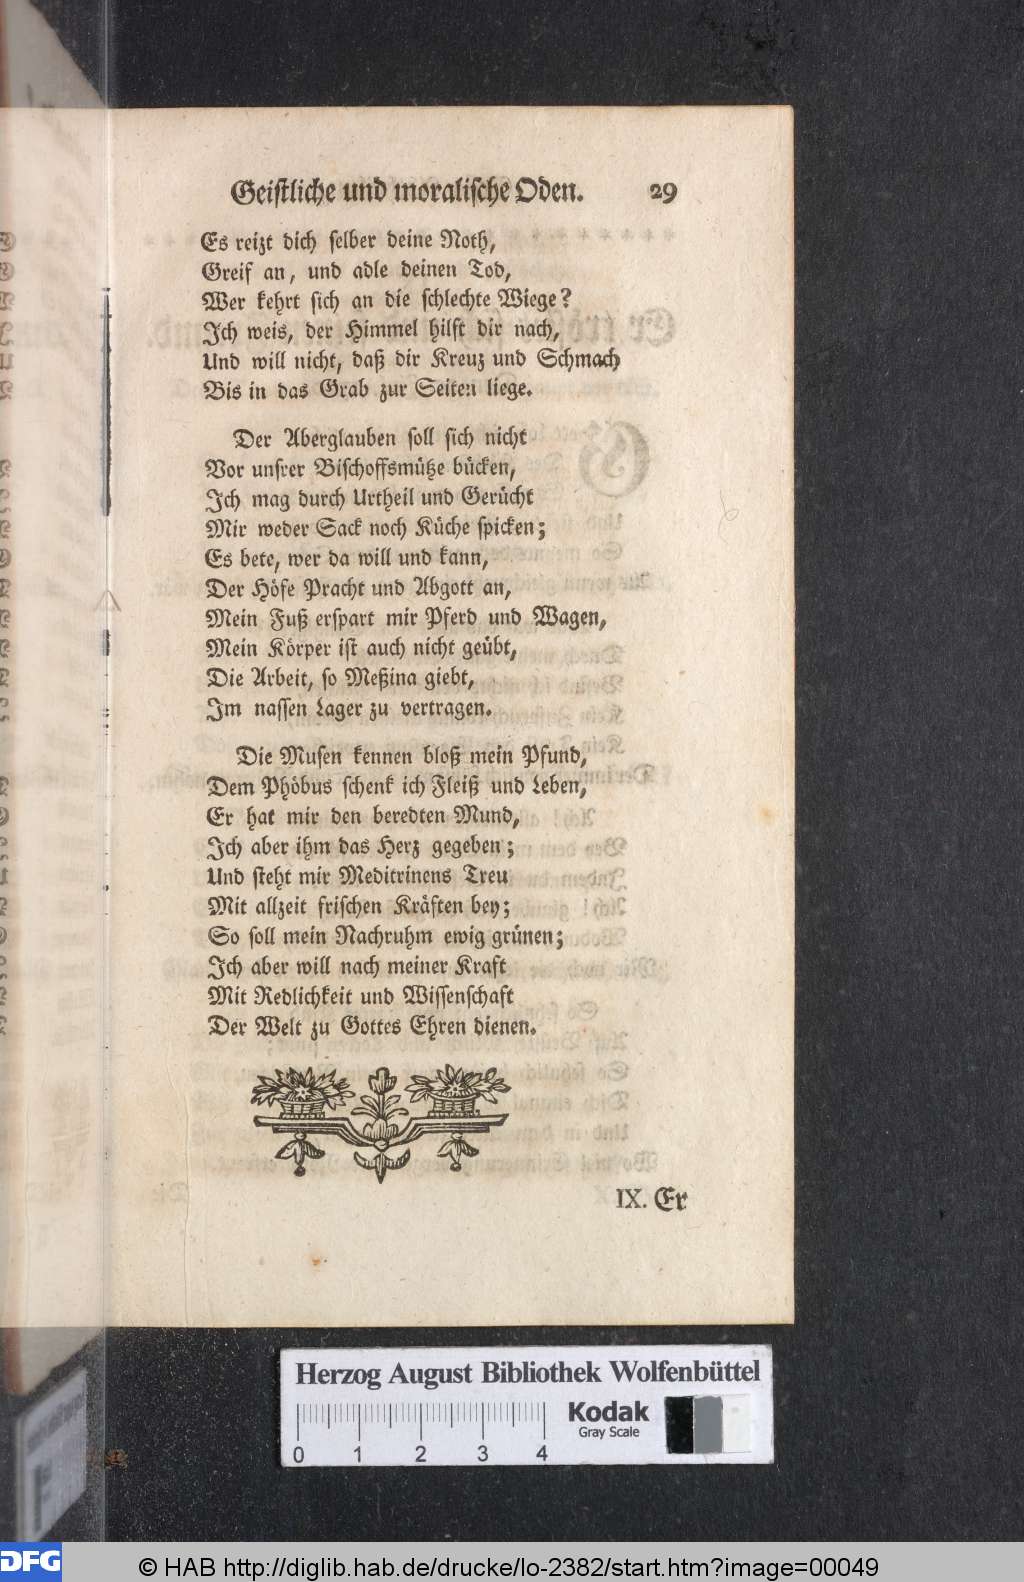 Geistliche und moralische Oden. 29
Es reizt dich selber deine Noth,
Greif an, und adle deinen Tod,
Wer kehrt sich an die schlechte Wiege?
Ich weis, der Himmel hilft dir nach,
Und will nicht, daß dir Kreuz und Schmach
Bis in das Grab zur Seiten liege.
Der Aberglauben soll sich nicht
Vor unsrer Bischoffsmütze bücken,
Ich mag durch Urtheil und Gerücht
Mir weder Sack noch Küche spicken;
Es bete, wer da will und kann,
Der Höfe Pracht und Abgott an,
Mein Fuß erspart mir Pferd und Wagen,
Mein Körper ist auch nicht geübt,
Die Arbeit, so Meßina giebt,
Im nassen Lager zu vertragen.
Die Musen kennen bloß mein Pfund,
Dem Phöbus schenk ich Fleiß und Leben,
Er hat mir den beredten Mund,
Ich aber ihm das Herz gegeben;
Und steht mir Meditrinens Treu
Mit allzeit frischen Kräften bey;
So soll mein Nachruhm ewig grünen;
Ich aber will nach meiner Kraft
Mit Redlichkeit und Wissenschaft
Der Welt zu Gottes Ehren dienen.
IX. Er
Herzog August Bibliothek Wolfenbüttel
Kodak
Gray Scale
0 1 2 3 4
DFG
© HAB http://diglib.hab.de/drucke/lo-2382/start.htm?image=00049